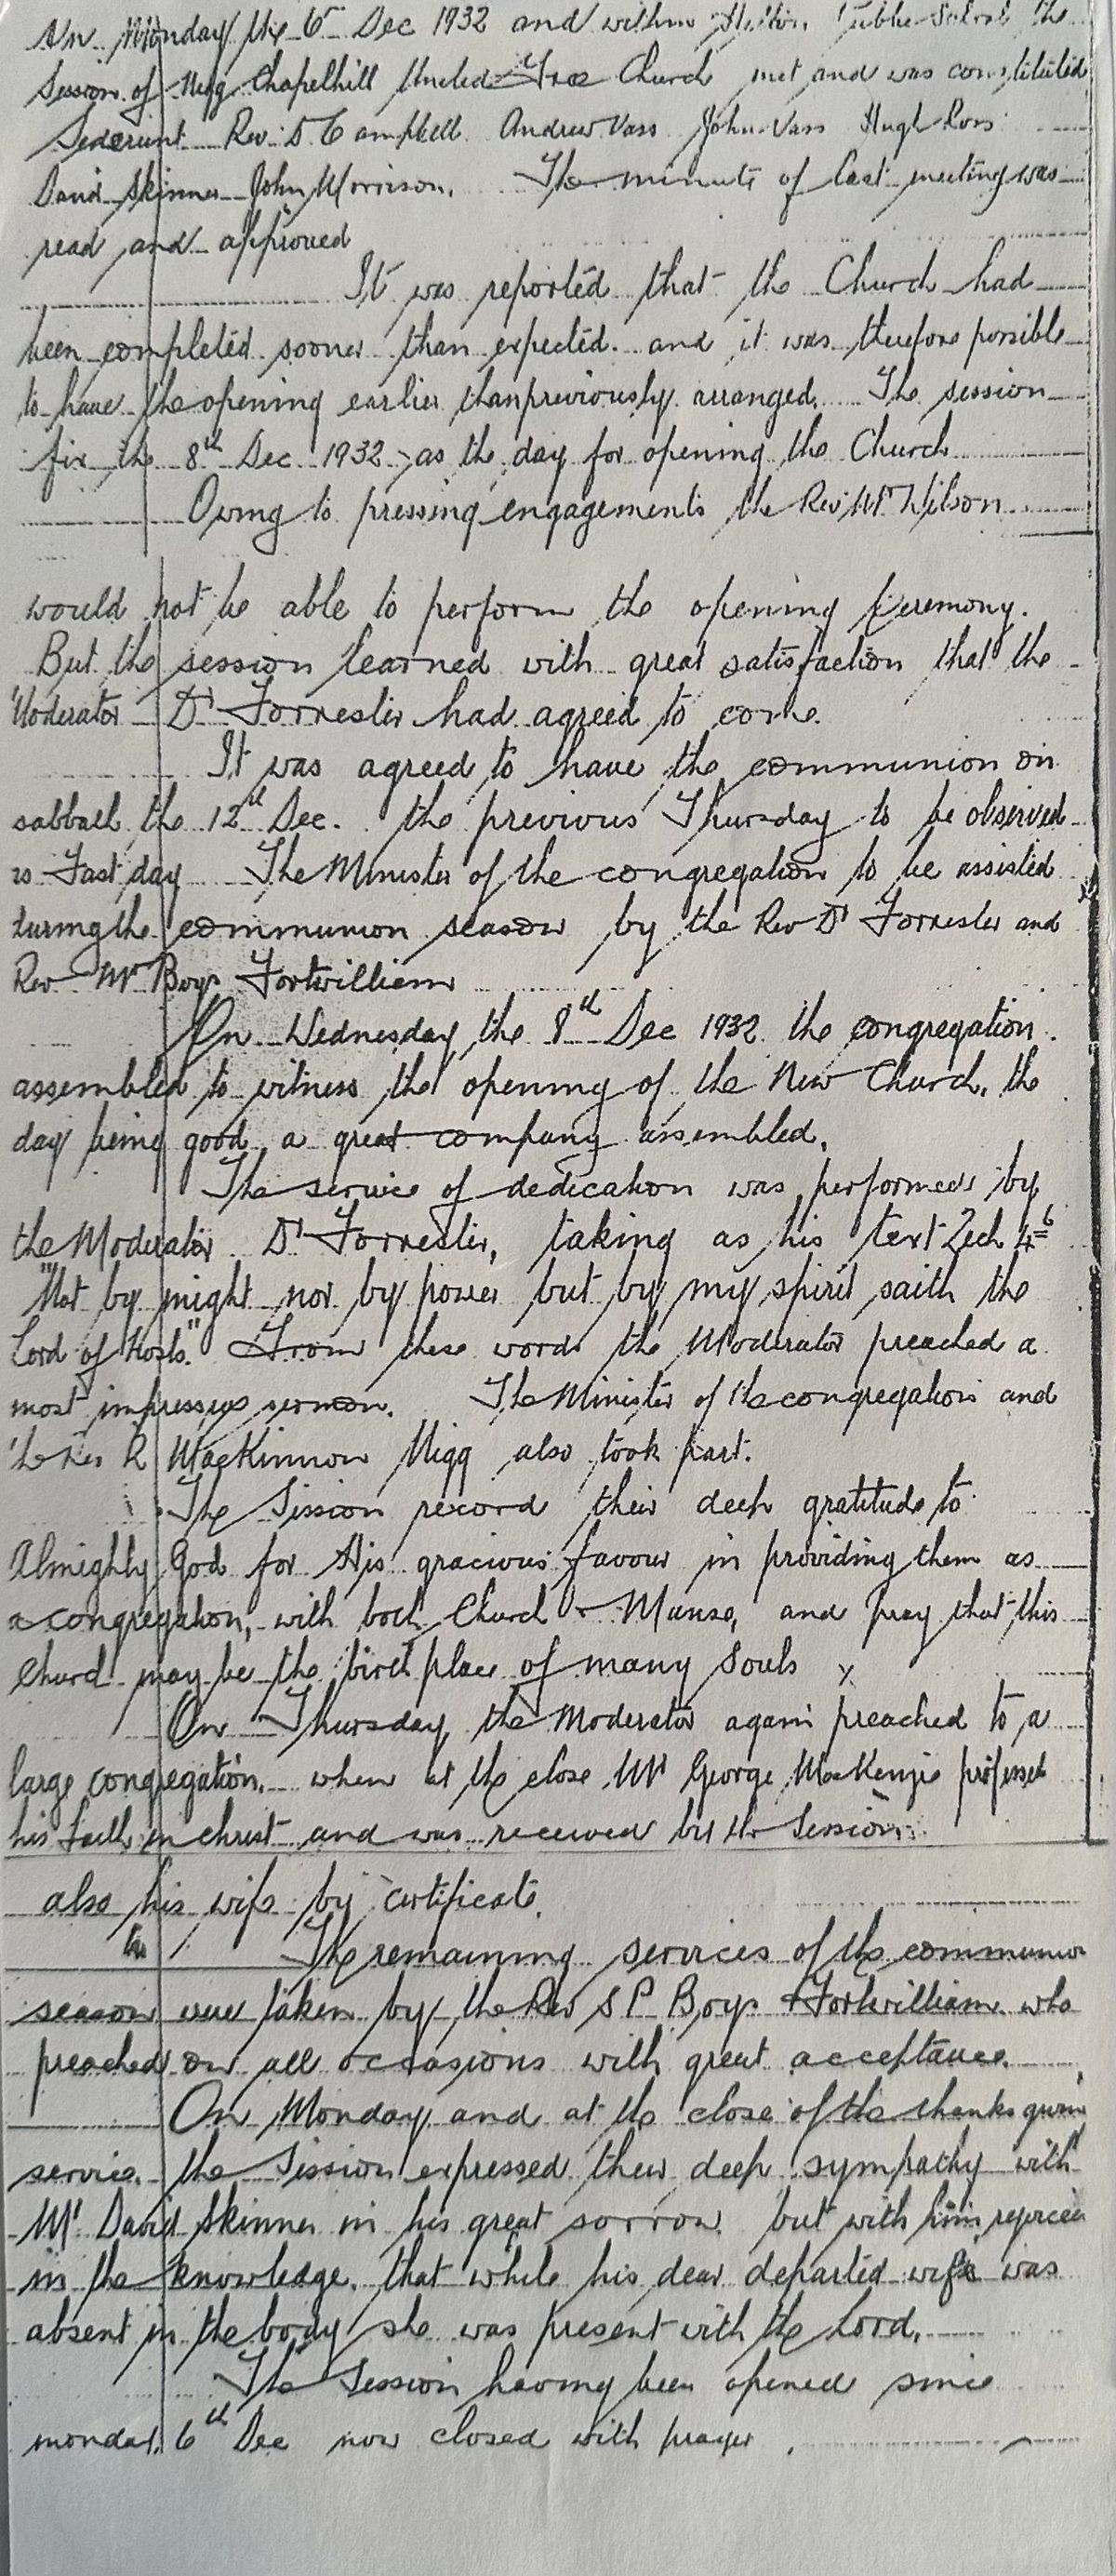 On Monday the 6 Dec 1932 and within Public School the
Session of Nigg Chapelhill United Free Church met and was constituted
Sederunt Rev D Campbell Andrew Vass John Vass Hugh Ross
David Skinner John Morrison. The minute of last meeting was
read and approved
It was reported that the Church had
been completed sooner than expected. and it was therefore possible
to have the opening earlier than previously arranged. The session
fix the 8th Dec 1932 as the day for opening the Church
Owing to pressing engagements the Rev Mr Wilson
would not be able to perform the opening Ceremony.
But the session learned with great satisfaction that the
Moderator Dr Forrester had agreed to come.
It was agreed to have the communion on
sabbath the 12th Dec. the previous Thursday to be observed
as Fast day The Minister of the congregation to be assisted
during the communion season by the Rev Dr Forrester and
Rev Mr Boyd Fortwilliam
On Wednesday the 8th Dec 1932 the congregation
assembled to witness the opening of the New Church, the
day being good a great company assembled.
The service of dedication was performed by
the Moderator Dr Forrester, taking as his text Zech 4=6
"Not by might nor by power but by my spirit saith the
Lord of Hosts." From these words the Moderator preached a
most impressive sermon. The Minister of the congregation and
the Rev R MacKinnon Nigg also took part.
The Session record their deep gratitude to
Almighty God for His gracious favour in providing them as
a congregation, with both Church & Manse, and pray that this
Church may be the birth place of many Souls x
On Thursday the Moderator again preached to a
large congregation. when at the close Mr George MacKenzie professed
his faith in Christ and was received by the Session
also his wife by certificate.
The remaining services of the communion
season were taken by the Rev S P Boyd Fortwilliam who
preached on all occasions with great acceptance.
On Monday and at the close of the thanksgiving
service. the Session expressed their deep sympathy with
Mr David Skinner in his great sorrow. but with him rejoiced
in the knowledge. that while his dear departed wife was
absent in the body she was present with the Lord.
The Session having been opened since
monday 6th Dec now closed with prayer.